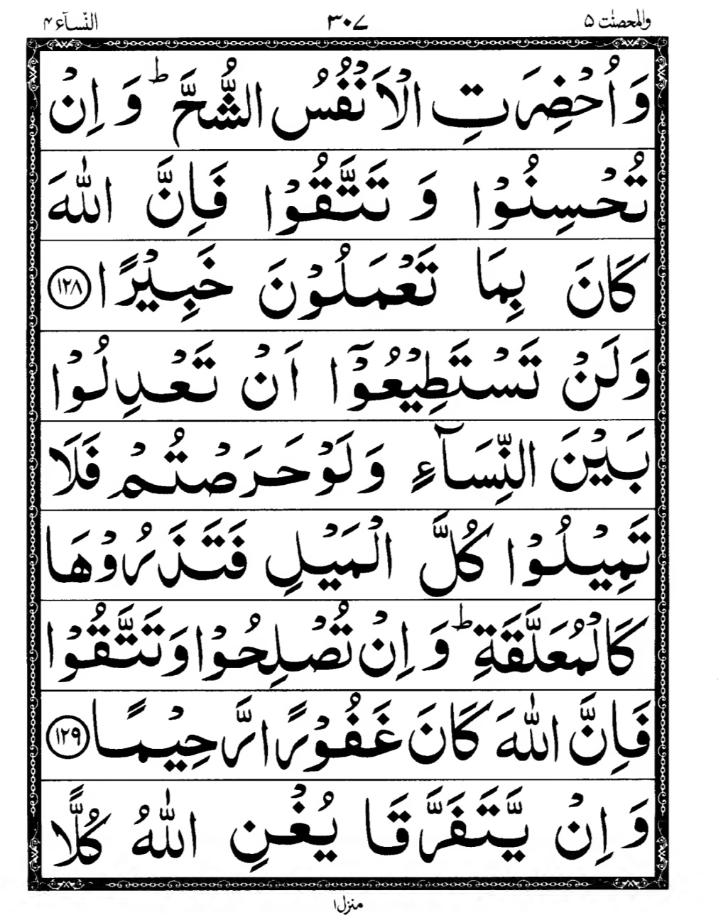 والمحصنت ۵ ۳۰۷ النّسآء ۴
وَاُحْضِرَتِ الْاَنْفُسُ الشُّحَّ ؕ وَ اِنْ
تُحْسِنُوْا وَ تَتَّقُوْا فَاِنَّ اللّٰهَ
كَانَ بِمَا تَعْمَلُوْنَ خَبِيْرًا ﴿۱۲۸﴾
وَلَنْ تَسْتَطِيْعُوْۤا اَنْ تَعْدِلُوْا
بَيْنَ النِّسَآءِ وَلَوْ حَرَصْتُمْ فَلَا
تَمِيْلُوْا كُلَّ الْمَيْلِ فَتَذَرُوْهَا
كَالْمُعَلَّقَةِ ؕ وَ اِنْ تُصْلِحُوْا وَتَتَّقُوْا
فَاِنَّ اللّٰهَ كَانَ غَفُوْرًا رَّحِيْمًا ﴿۱۲۹﴾
وَ اِنْ يَّتَفَرَّقَا يُغْنِ اللّٰهُ كُلًّا
منزل۱